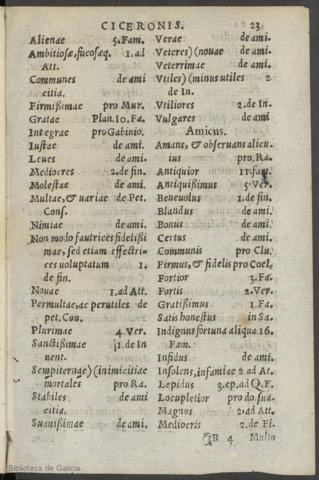 CICERONIS. 23
Alienae 5.Fam.
Ambitiosæ, fucosæq. 1.ad
Att.
Communes de ami
citia.
Firmißimæ pro Mur.
Gratae Plan.10.Fa.
Integrae pro Gabinio.
Iustae de ami.
Leues de ami.
Mediocres 2.de fin.
Molestae de ami.
Multae, & uariae de Pet.
Cons.
Nimiae de ami.
Non modo fautrices fidelißi
mae, sed etiam effectri-
ces uoluptatum 1.
de fin.
Nouae 1.ad Att.
Permultae, ac perutiles de
pet. Con.
Plurimae 4.Ver.
Sanctißimæ 1.de In
uent.
Sempiternae) (inimicitiae
mortales pro Ra.
Stabiles de ami
citia.
Suauißimae de ami.
Verae de ami.
Veteres) (nouae de ami.
Veterrimae de ami.
Vtiles) (minus utiles 2
de In.
Vtiliores 2.de In.
Vulgares de ami
Amicus.
Amans, & obseruans alicu.
ius pro.Ra.
Antiquior 11.fam.
Antiquißimus 5.Ver.
Beneuolus 1.de fin.
Blandus de ami.
Bonus de ami.
Certus de ami.
Communis pro Clu.
Firmus, & fidelis pro Coel.
Fortior 3.Fa.
Fortis 2.Ver.
Gratißimus 1.Fa.
Satis honestus in Sa.
Indignus fortuna aliqua 16.
Fam.
Infidus de ami.
Insolens, infamiae 2.ad At.
Lepidus 3.ep.ad Q.F.
Locupletior pro do.sua.
Magnus 2.ad Att.
Mediocris 2.de Fi.
B 4 Multo
Biblioteca de Galicia